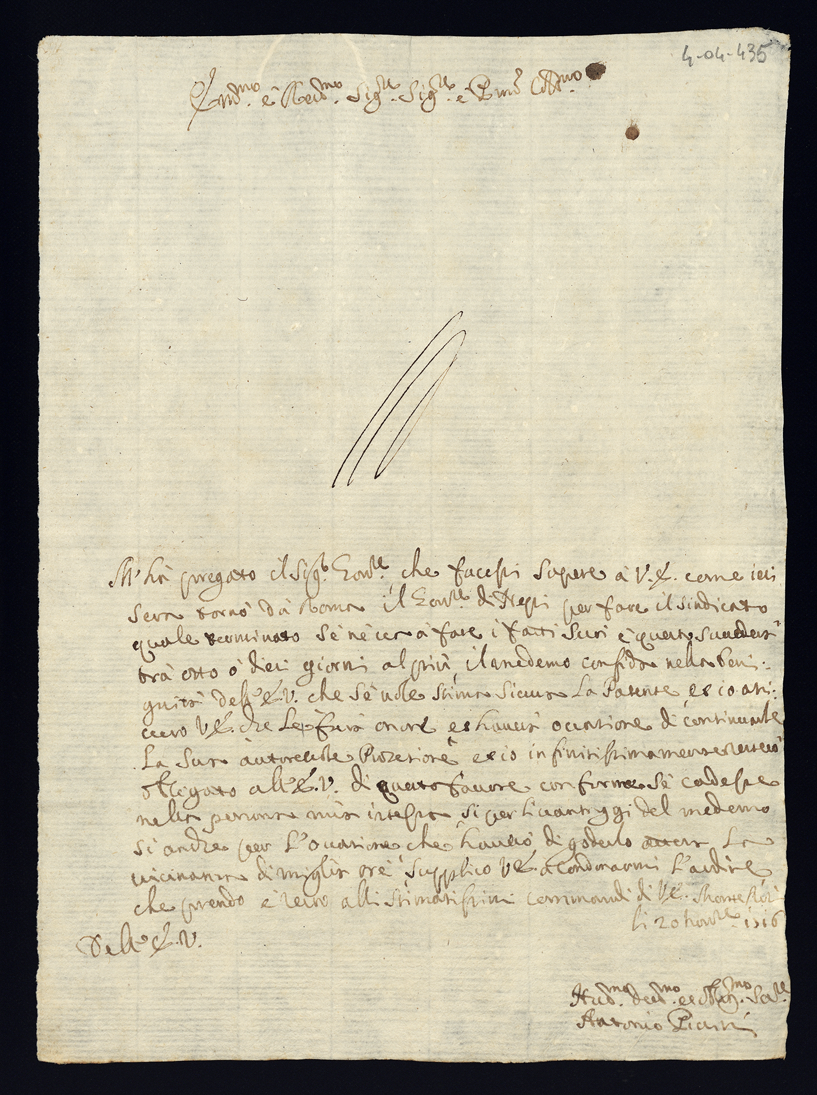 4-04-435
Em̄mo. e Reud̄mo. Sigre. Sigre. e Prone Colmo.
M'hà pregato il Sigr. Govre. che facessi sapere à V.E. come ieri
sera tornò dà Roma il Govre. di per fare il sindicato
quale terminato sè nè uà à fare i fatti suoi e questo
trà otto ò dieci giorni al più, il medemo confida nella beni:
gnità dell'E.V. che sè uole stima sicura La Patente et io assi:
curo V.E. che Le farà onore et hauerà occasione di continuarle
La Sua autoreuole Protezione et io infinitissimamente resterò
obligato all'E.V. di questo fauore conforme sè cadesse
nella persona mia istessa si per i uantaggi del medemo
si anche per L'occasione che hauerò di goderlo La
uicinanza di miglia Supplico V.E. a condonarmi L'ardire
che prendo e resto alli stimatissimi commandi di V.E.
li 20 Novre. 1716
Dell'E.V.
Hum̄o. Deu̅mo. et Obligmo. Serre.
Antonio